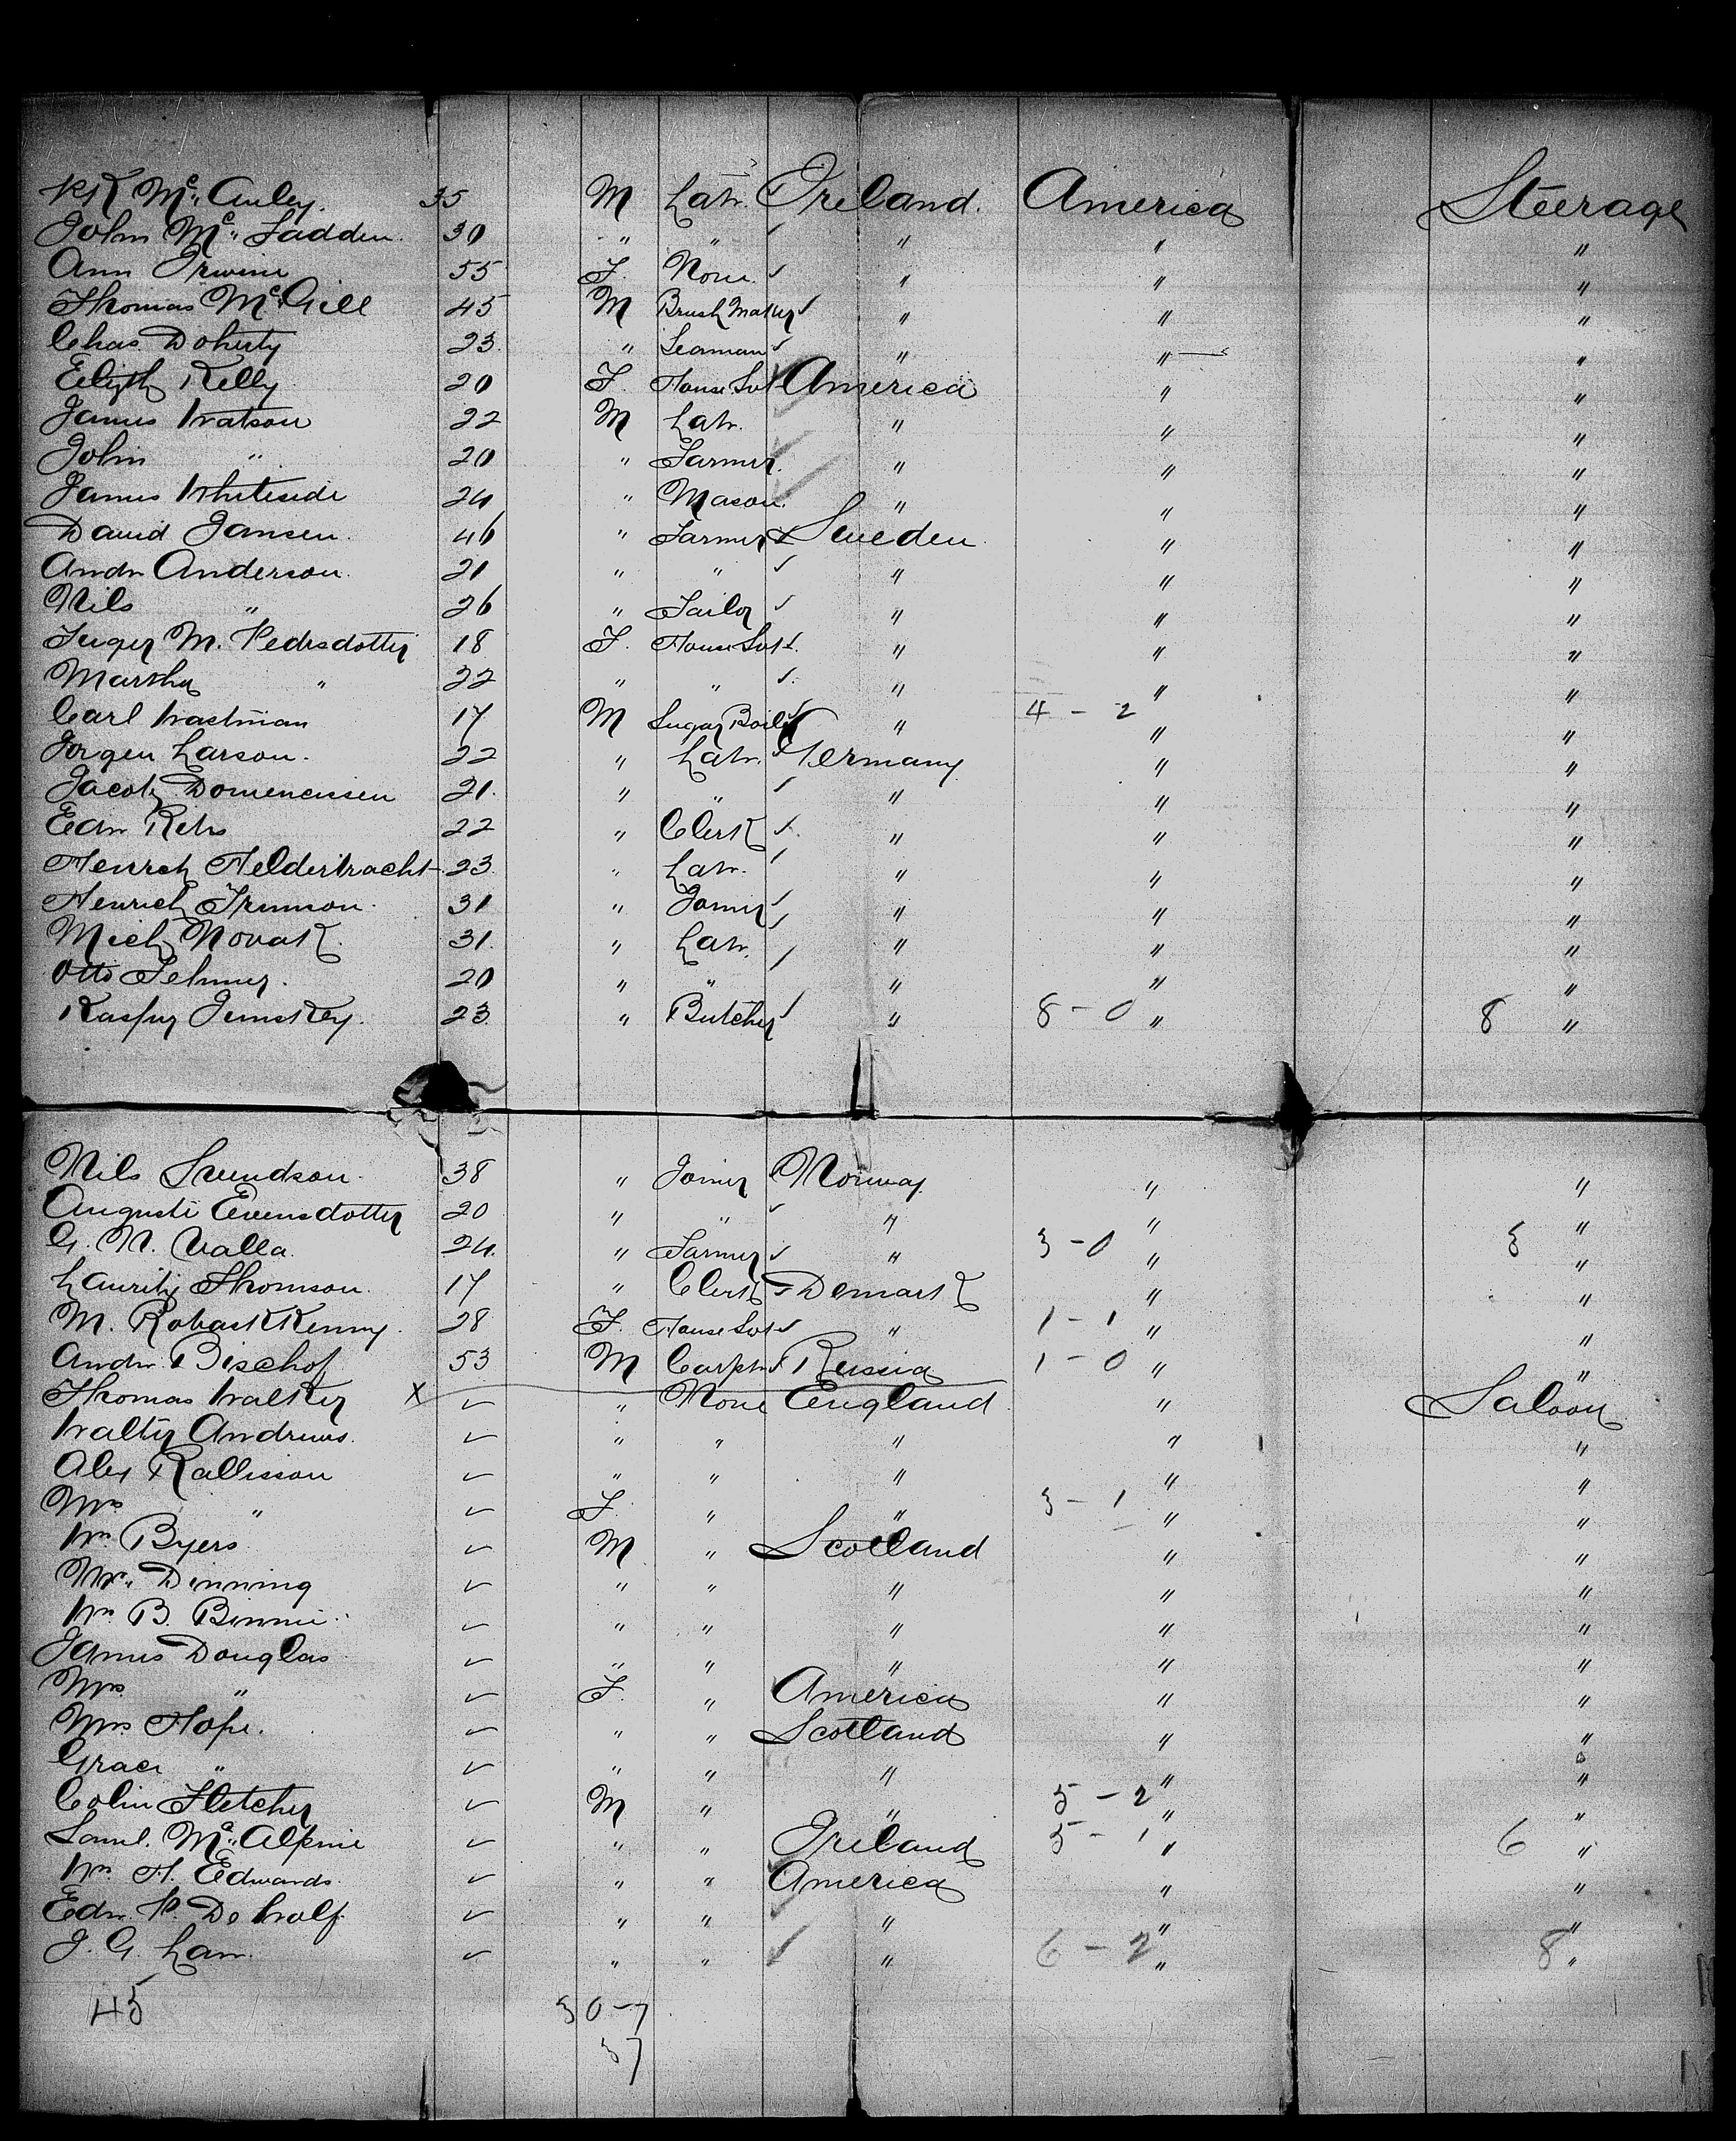 McAuley. 35 M Labr. Ireland. America Steerage
John Mc. Fadden. 30 " " ✓ " " "
Ann Irwine 55 F. None ✓ " " "
Thomas McGill 45 M Brush Maker ✓ " " "
Chas Doherty 23. " Seaman ✓ " " "
Elizth Kelly 20 F. House Svt America " "
James Watson 22 M Labr. " " "
John " 20 " Farmer. " " "
James Whiteside 24 " Mason. " " "
David Jansen. 46 " Farmer Sweden " "
Andw Anderson. 21 " " ✓ " " "
Nils " 26 " Tailor ✓ " " "
Inger M. Pedrsdotter 18 F. House Svt ✓ " " "
Martha " 22 " " ✓ " " "
Carl Wastman 17 M Sugar Boiler ✓ " 4 - 2 " "
Jorgen Larson. 22 " Labr. Germany. " "
Jacob Domeneissen 21. " " ✓ " " "
Edw Rehs 22 " Clerk ✓ " " "
Henrich 23. " Labr. ✓ " " "
Henrich 31 " Joiner ✓ " " "
Mich Novak. 31. " Labr. ✓ " " "
Otto 20 " " " " "
Kasper 23. " Butcher ✓ " 8 - 0 " 8 "
Nils Svendson. 38 " Joiner Norway. " "
Auguste Evensdotter 20 " " ✓ " " "
G. N. Valla. 24. " Farmer ✓ " 3 - 0 " 3 "
Lauritz Thomson. 17 " Clerk Demark " "
M. 28 F. House Svt ✓ " 1 - 1 " "
Andw. Bischof 53 M Carptr Russia 1 - 0 " "
Thomas Walker X ✓ " None England. " Saloon
Walter Andrews. ✓ " " " " "
Alex Rallisson ✓ " " " " "
Mrs " ✓ F. " " 3 - 1 " "
Wm Byers ✓ M " Scotland " "
Mr. Dinning ✓ " " " " "
Wm B. Binnie. ✓ " " " " "
James Douglas ✓ " " " " "
Mrs. " ✓ F. " America " "
Mrs Hope. ✓ " " Scotland " "
Grace " ✓ " " " " "
Colin Fletcher ✓ M " " 5 - 2 " "
Saml. Mc. Alpine ✓ " " Ireland 5 - 1 " 6 "
Wm H. Edwards. ✓ " " America " "
Edw. P. De Wolf. ✓ " " " " "
J. G. Law. ✓ " " ✓ " 6 - 2 " 8 "
45 30-7
37